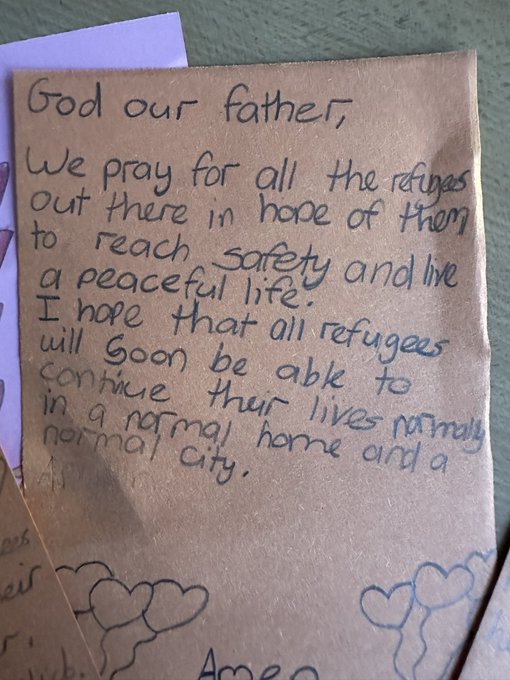 God our father,
We pray for all the refugees
out there in hope of them
to reach safety and live
a peaceful life.
I hope that all refugees
will soon be able to
continue their lives normally
in a normal home and a
normal city.
Amen
eir
r.